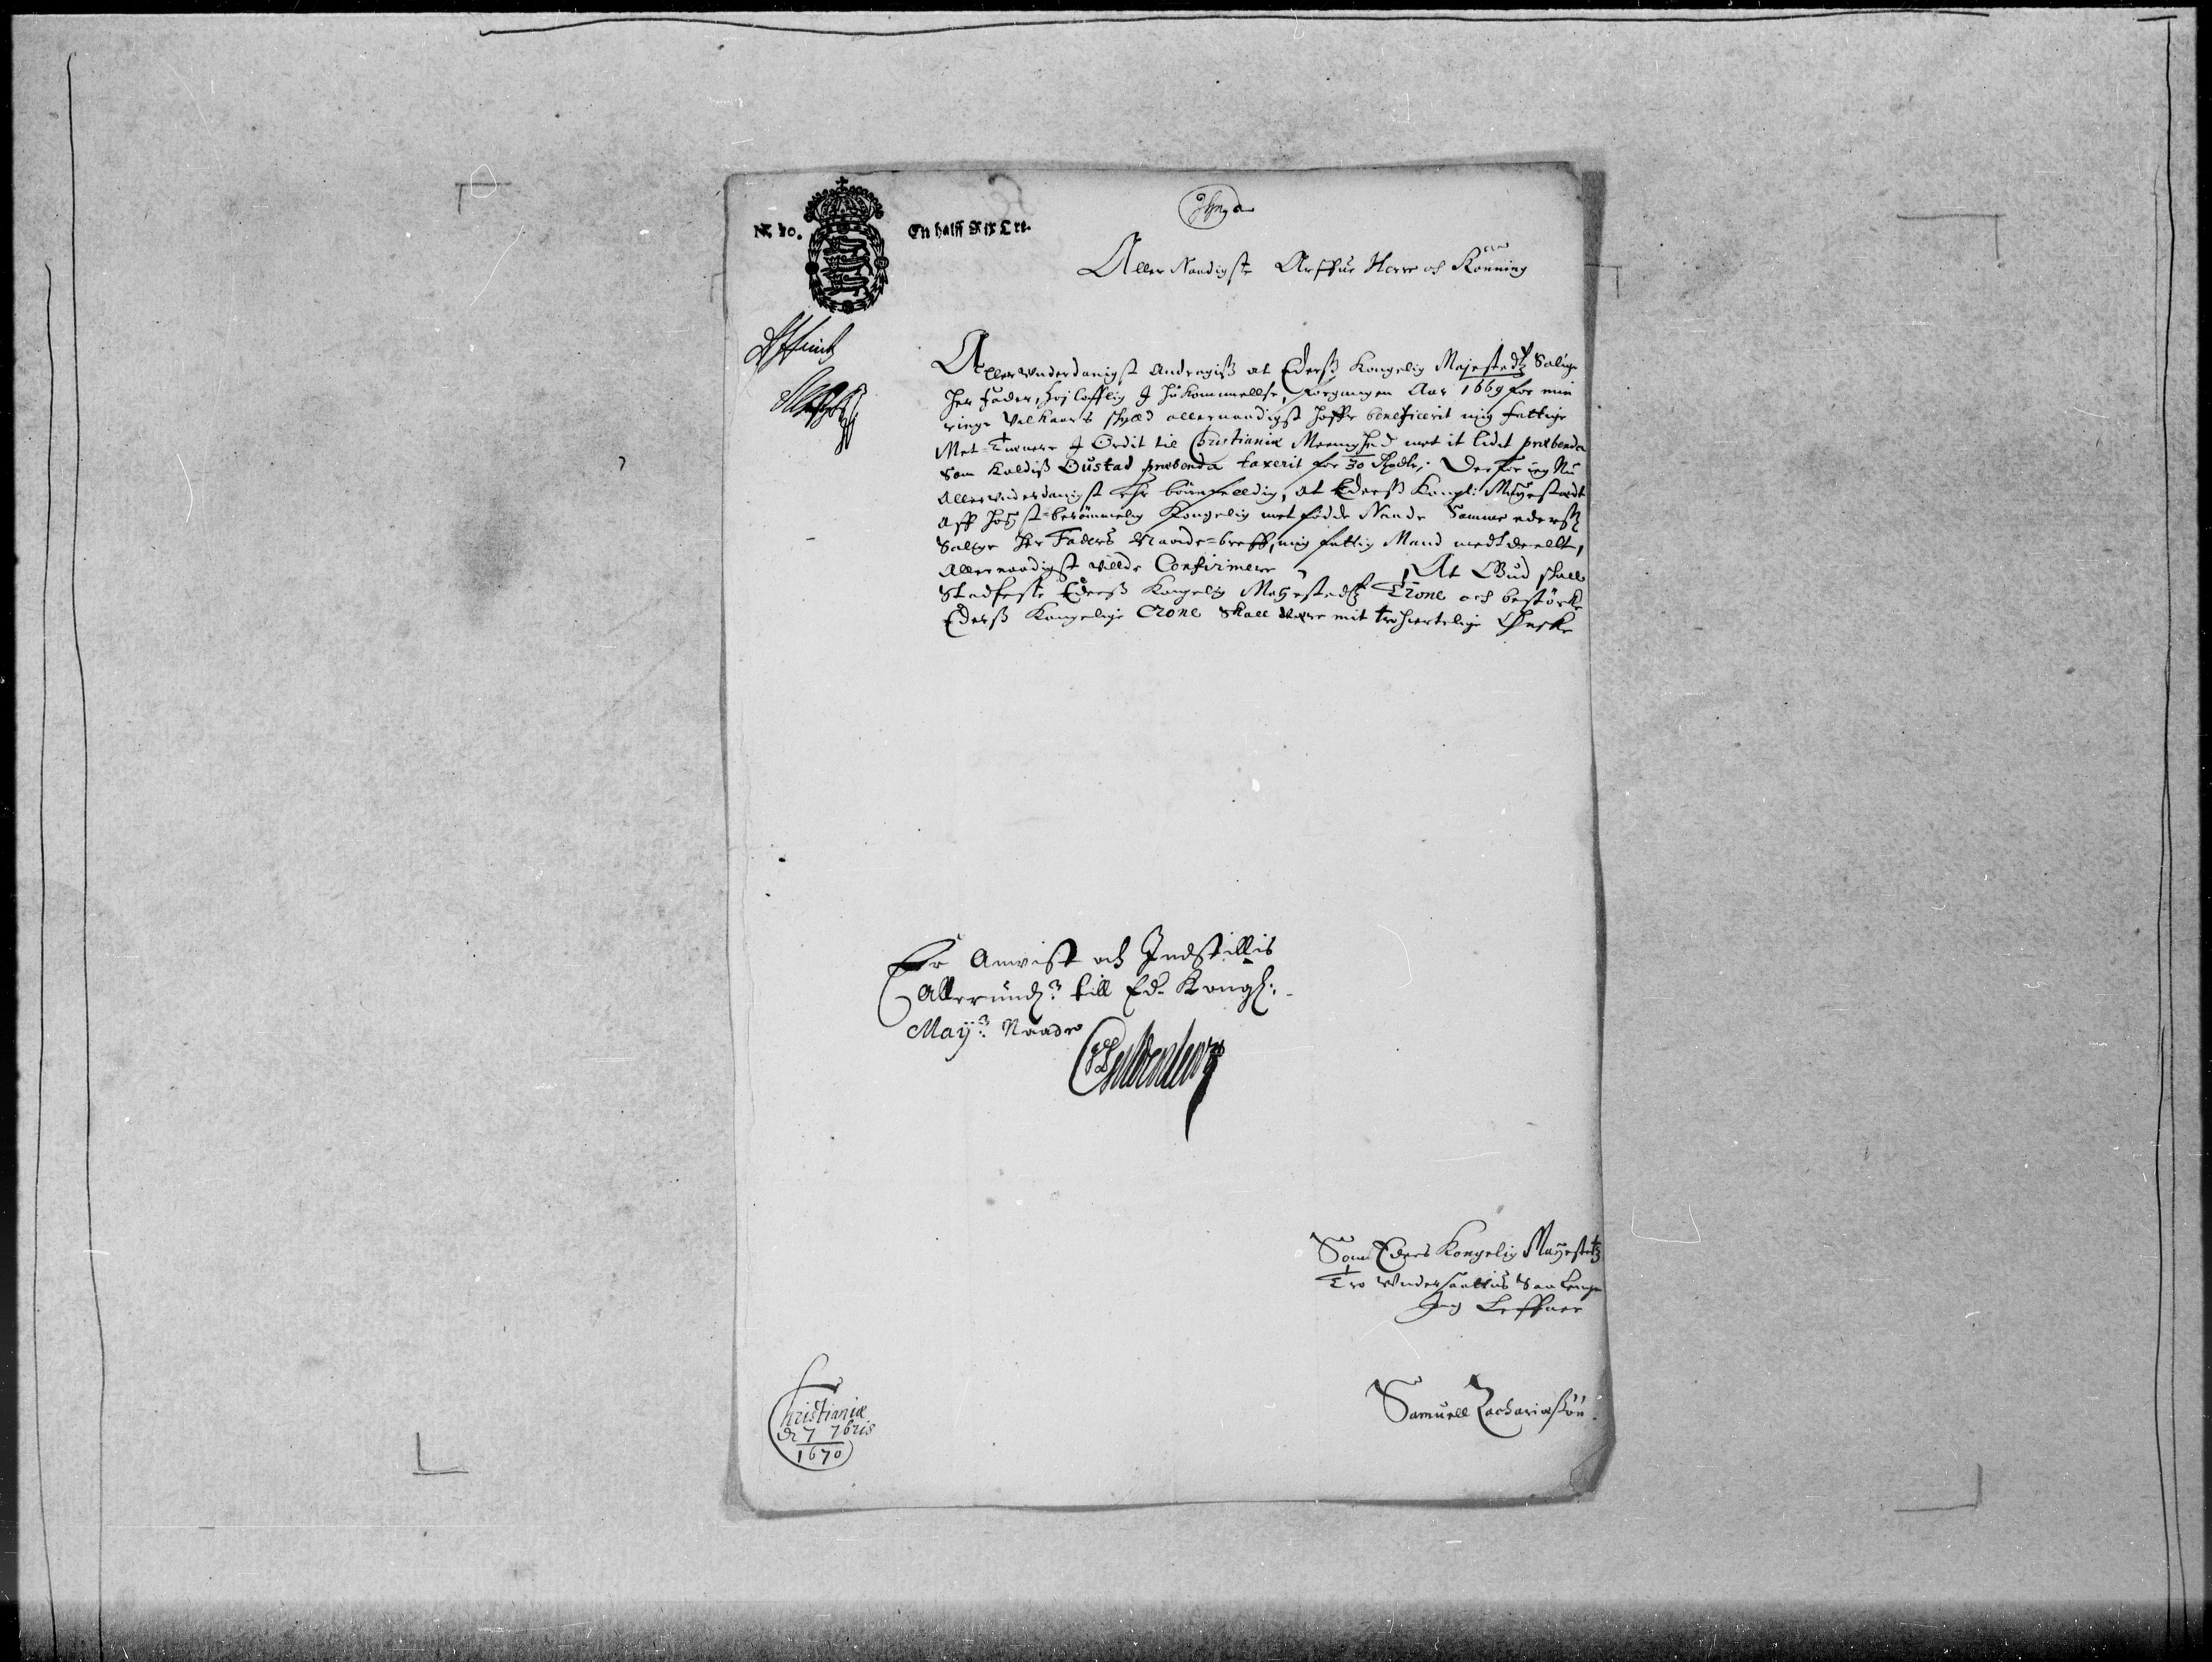 N. 10.
En halff Rix Ort.
Aller Naadigste Arffue Herre och Konning
Allerunderdanigst Andragiß at Ederß Kongelig Majestedtz Salige
Her Fader, Höj Lofflig J hukommellse, forgangen Aar 1669 for min
ringe Vilkaar's skyld allernaadigst haffr beneficerit mig fattige
Met-Tienere J Ordit til Christianiæ Meenighed met it lidet præbenda
Som kaldiß Oustad præbenda taxerit for 30 Rdlr; Derfor jeg Nu
Allerunderdanigst Er bönfeldig, at Ederß Kongl: Mayestædt
Aff Höyst-berömmelig Kongelig met födde Naade Samme ederß
Salige Her Faders Naade-breff, mig fattig Mand meddeellt,
Allernaadigst villde Confirmere At Gud skall
Stadfeste Ederß Kongelig Mayestedtz Trone och bestörke
Ederß Kongelige Crone Skall være mit troehiertelige Önske
Er Anvist och Indstillis
Allerund: till Ed. Kongl:
May: Naade
Gyldenlöwe
Som Eders Kongelig Mayestetz
Tro Undersaatt Saa Lenge
Jeg Leffuer
Samuell Zachariæsön
Christianiæ
d 7 7bris
1670